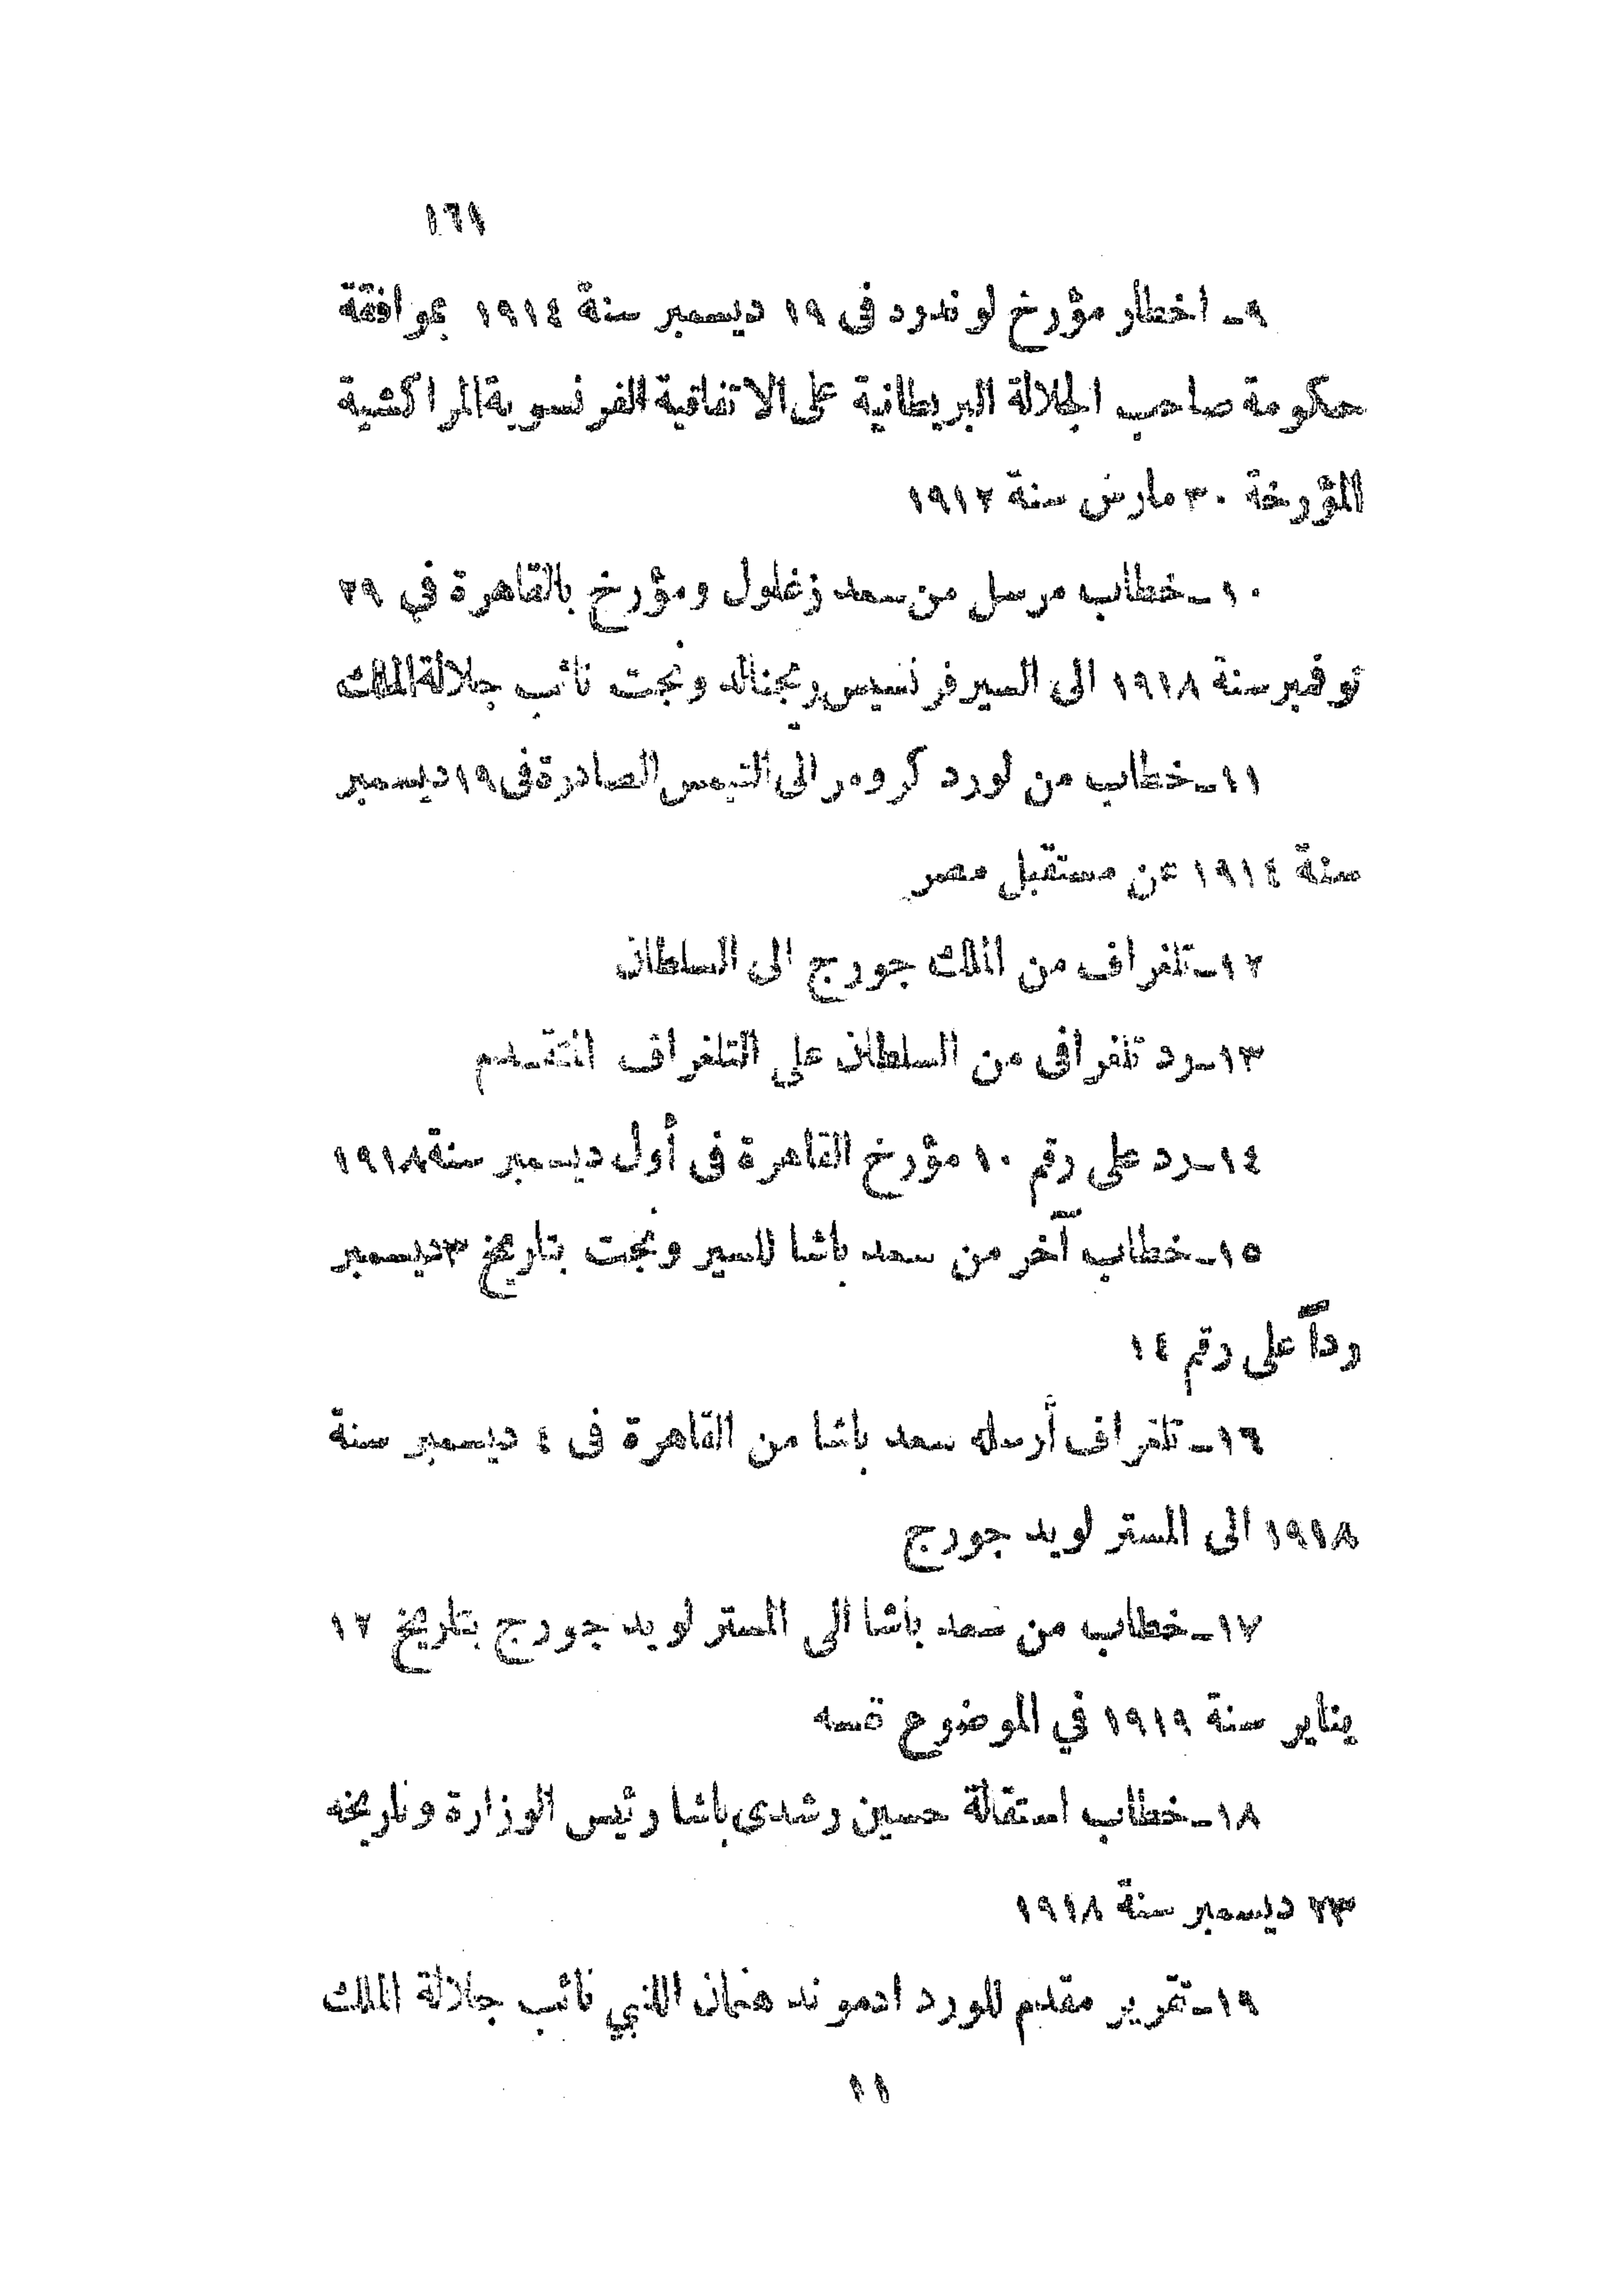 ١٦١
٩ـ اخطار مؤرخ لوندرد في ١٩ ديسمبر سنة ١٩١٤ بموافقة
حكومة صاحب الجلالة البريطانية على الاتفاقية الفرنسوية المراكشية
المؤرخة ٣٠ مارس سنة ١٩١٢
١٠ـ خطاب مرسل من سعد زغلول ومؤرخ بالقاهرة في ٢٩
نوفمبر سنة ١٩١٨ الى السير فرنسيس ريجنالد ونجت نائب جلالة الملك
١١ـ خطاب من لورد كرومر الى التيمس الصادرة في ١٩ ديسمبر
سنة ١٩١٤ عن مستقبل مصر
١٢ـ تلغراف من الملك جورج الى السلطان
١٣ـ رد تلغرافى من السلطان علي التلغراف المتقدم
١٤ـ رد على رقم ١٠ مؤرخ القاهرة فى أول ديسمبر سنة ١٩١٨
١٥ـ خطاب آخر من سعد باشا للسير ونجت بتاريخ ٣ ديسمبر
رداً على رقم ١٤
١٦ـ تلغراف أرسله سعد باشا من القاهرة فى ٤ ديسمبر سنة
١٩١٨ الى المستر لويد جورج
١٧ـ خطاب من سعد باشا الى المستر لويد جورج بتاريخ ١٢
يناير سنة ١٩١٩ في الموضوع نفسه
١٨ـ خطاب استقالة حسين رشدى باشا رئيس الوزارة وتاريخه
٢٣ ديسمبر سنة ١٩١٨
١٩ـ تقرير مقدم للورد ادموند هنمان اللنبي نائب جلالة الملك
١١